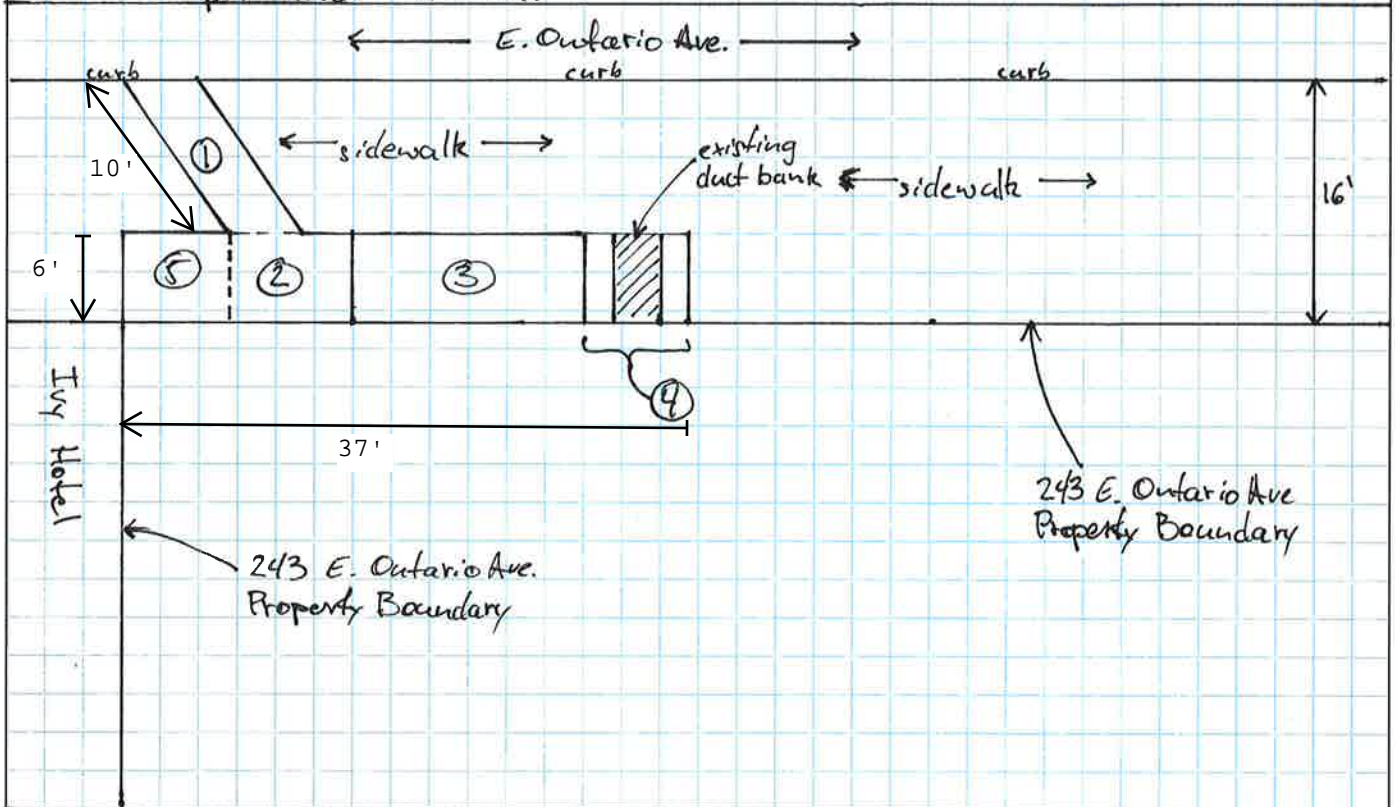 E. Ontario Ave.
curb curb curb
1
sidewalk
existing
duct bank
sidewalk
10'
16'
6'
5 2 3
4
37'
Ivy Hotel
243 E. Ontario Ave
Property Boundary
243 E. Ontario Ave.
Property Boundary